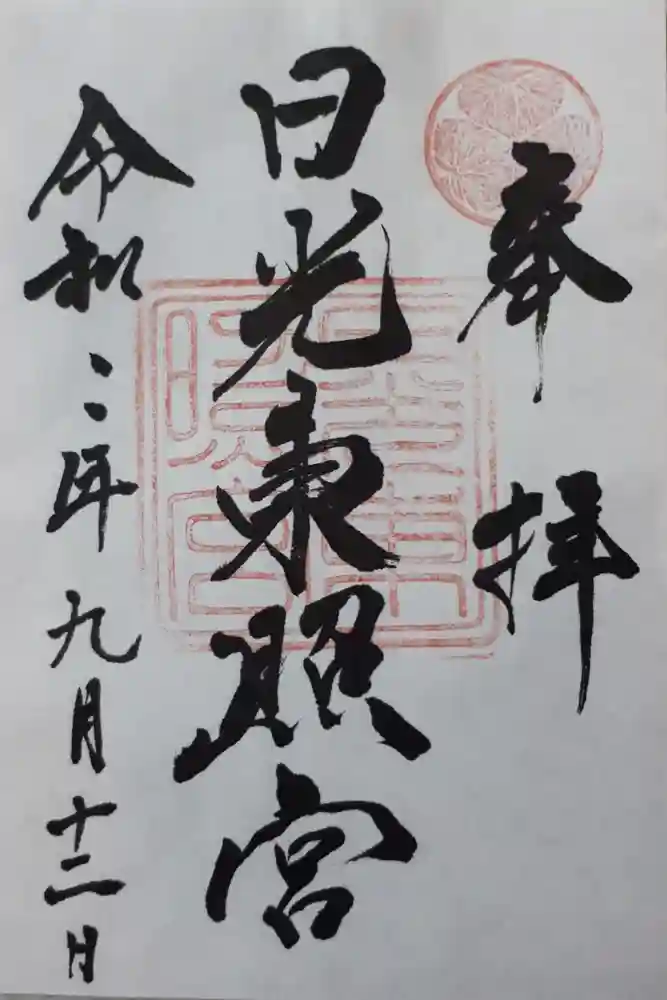 奉拝
日光東照宮
令和二年九月十二日